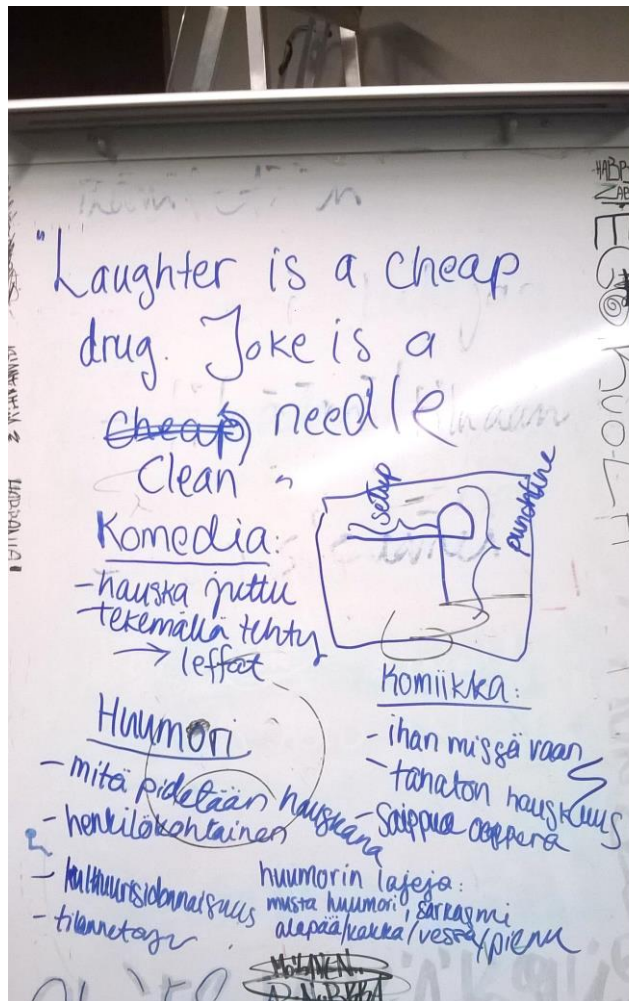 "Laughter is a cheap
drug. Joke is a
cheap needle
Clean "
setup
punchline
Komedia:
- hauska juttu
- tekemällä tehty
→ leffat
Komiikka:
- ihan missä vaan
- tahaton hauskuus
- Saippua ooppera
Huumori
- mitä pidetään hauskana
- henkilökohtainen
- kulttuurisidonnaisuus
- tilannetaju
huumorin lajeja:
musta huumori, sarkasmi
alapää/kakka/vessa/pieru